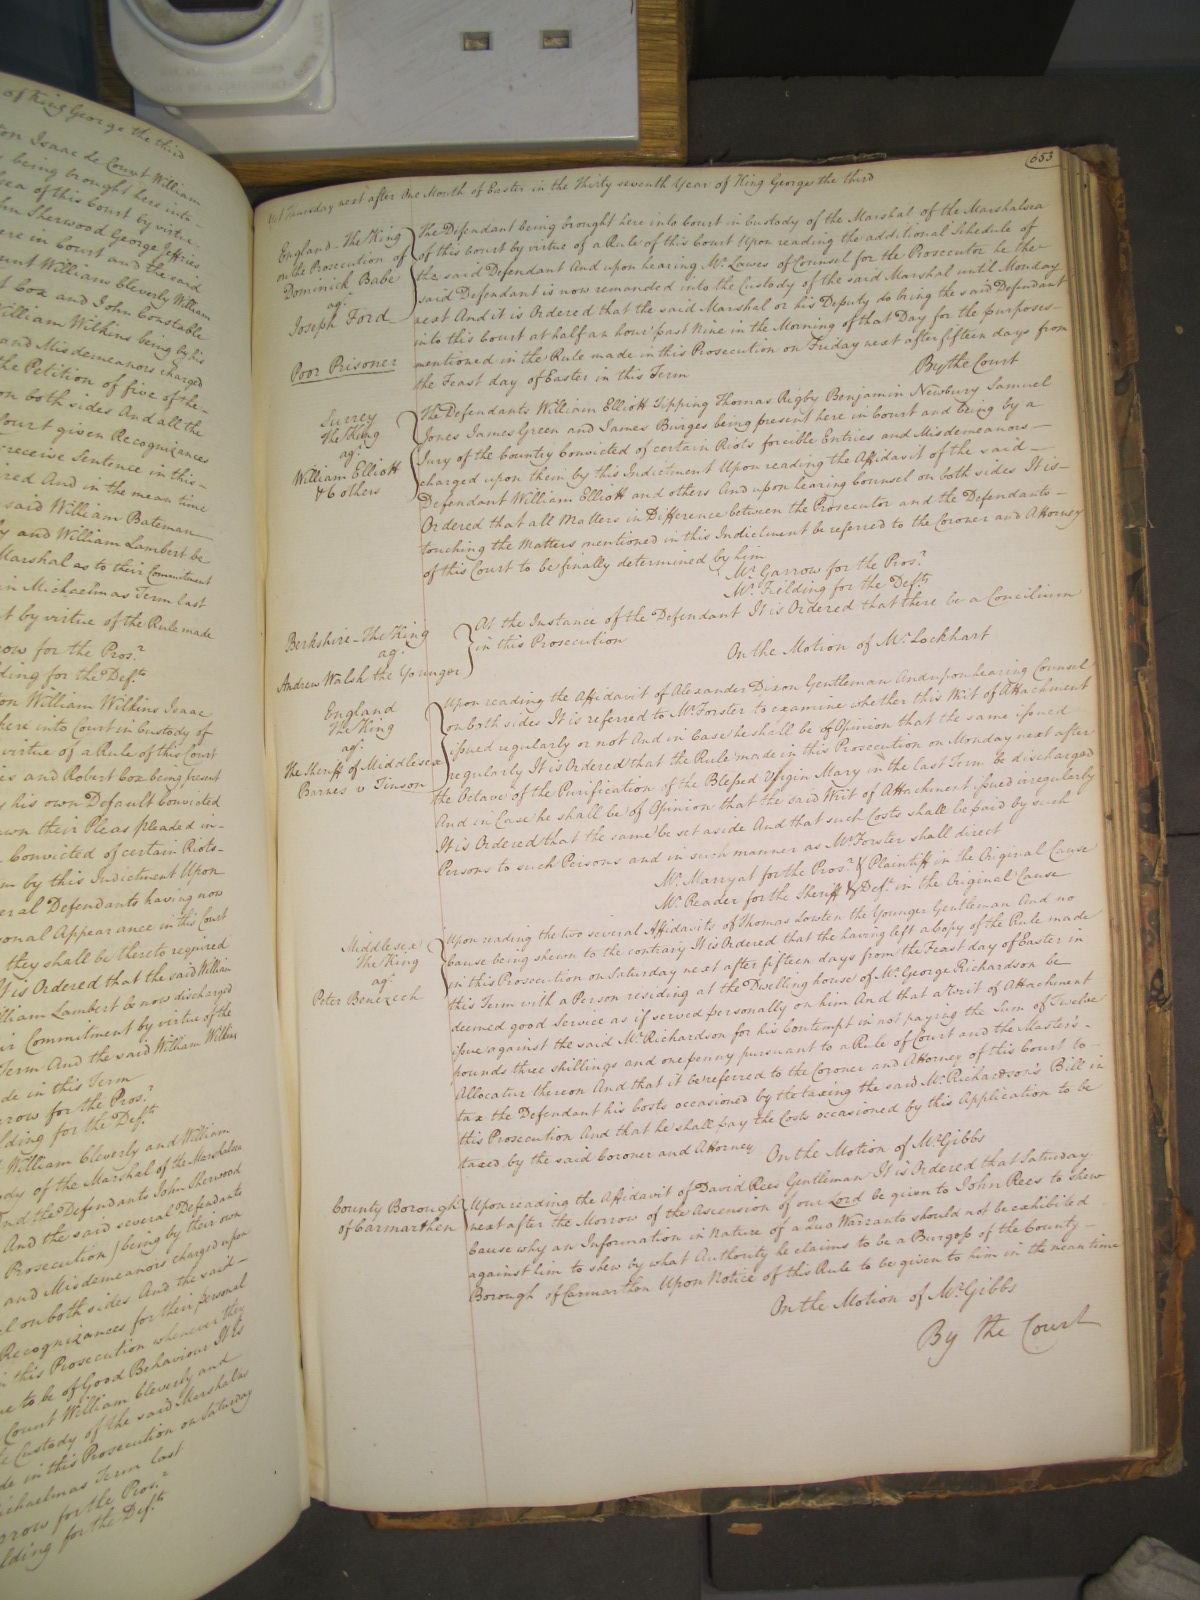 of King George the third
Isaac de Count William
being brought here into
of this Court by virtue
John Sherwood George Jeffries
here in Court and the said
Count William Cleverly William
Cox and John Constable
William Wilkins being by his
and Misdemeanors charged
the Petition of five of the
on both sides And all the
Court given Recognizances
receive Sentence in this
And in the mean time
said William Bateman
and William Lambert be
Marshal as to their Commitment
in Michaelmas Term last
by virtue of the Rule made
for the Pros.r
for the Def.ts
William Wilkins Isaac
here into Court in Custody of
virtue of a Rule of this Court
and Robert Cox being present
his own Default Convicted
their Pleas pleaded in
Convicted of certain Riots
by this Indictment Upon
several Defendants having now
personal Appearance in this Court
they shall be thereto required
It is Ordered that the said William
William Lambert be now discharged
Commitment by virtue of the
Term And the said William Wilkins
in this Term
for the Pros.r
for the Def.ts
William Cleverly and William
of the Marshal of the Marshalsea
And the Defendants John Sherwood
And the said several Defendants
Prosecution) being by their own
and Misdemeanors charged upon
on both sides And the said
Recognizances for their personal
this Prosecution whenever they
to be of Good Behaviour It is
Count William Cleverly and
Custody of the said Marshal as
in this Prosecution on Saturday
Michaelmas Term last
for the Pros.r
for the Def.ts
653
Thursday next after One Month of Easter in the Thirty seventh Year of King George the third
England - The King
on the Prosecution of
Dominick Babe
ag.t
Joseph Ford
Poor Prisoner
The Defendant being brought here into Court in Custody of the Marshal of the Marshalsea
of this Court by virtue of a Rule of this Court Upon reading the additional Schedule of
the said Defendant And upon hearing Mr. Lawes of Counsel for the Prosecutor he the
said Defendant is now remanded into the Custody of the said Marshal until Monday
next And it is Ordered that the said Marshal or his Deputy do bring the said Defendant
into this Court at half an hour past Nine in the Morning of that Day for the purposes
mentioned in the Rule made in this Prosecution on Friday next after fifteen days from
the Feast day of Easter in this Term
By the Court
Surrey
The King
ag.t
William Elliott
& 6 others
The Defendants William Elliott Tipping Thomas Rigby Benjamin Newbury Samuel
Jones James Green and James Burges being present here in Court and being by a
Jury of the Country Convicted of certain Riots forcible Entries and Misdemeanors
charged upon them by this Indictment Upon reading the Affidavit of the said
Defendant William Elliott and others And upon hearing Counsel on both sides It is
Ordered that all Matters in Difference between the Prosecutor and the Defendants
touching the Matters mentioned in this Indictment be referred to the Coroner and Attorney
of this Court to be finally determined by him
Mr. Garrow for the Pros.r
Mr. Fielding for the Def.ts
Berkshire - The King
ag.t
Andrew Walsh the Younger
At the Instance of the Defendant It is Ordered that there be a Concilium
in this Prosecution
On the Motion of Mr. Lockhart
England
The King
ag.t
The Sheriff of Middlesex
Barnes v Tinson
Upon reading the Affidavit of Alexander Dixon Gentleman And upon hearing Counsel
on both sides It is referred to Mr. Forster to examine whether this Writ of Attachment
issued regularly or not And in Case he shall be of Opinion that the same issued
regularly It is Ordered that the Rule made in this Prosecution on Monday next after
the Octave of the Purification of the Blessed Virgin Mary in the last Term be discharged
And in Case he shall be of Opinion that the said Writ of Attachment issued irregularly
It is Ordered that the same be set aside And that such Costs shall be paid by such
Persons to such Persons and in such manner as Mr. Forster shall direct
Mr. Marryat for the Pros.r & Plaintiff in the Original Cause
Mr. Reader for the Sheriff & Def.t in the Original Cause
Middlesex
The King
ag.t
Peter Benezech
Upon reading the two several Affidavits of Thomas Lowten the Younger Gentleman And no
Cause being shewn to the contrary It is Ordered that the having left a Copy of the Rule made
in this Prosecution on Saturday next after fifteen days from the Feast day of Easter in
this Term with a Person residing at the Dwelling house of Mr. George Richardson be
deemed good Service as if served personally on him And that a Writ of Attachment
issue against the said Mr. Richardson for his Contempt in not paying the Sum of Twelve
pounds three shillings and one penny pursuant to a Rule of Court and the Master's
Allocatur thereon And that it be referred to the Coroner and Attorney of this Court to
tax the Defendant his Costs occasioned by the taxing the said Mr. Richardson's Bill in
this Prosecution And that he shall pay the Costs occasioned by this Application to be
taxed by the said Coroner and Attorney
On the Motion of Mr. Gibbs
County Borough
of Carmarthen
Upon reading the Affidavit of David Rees Gentleman It is Ordered that Saturday
next after the Morrow of the Ascension of our Lord be given to John Rees to shew
Cause why an Information in Nature of a Quo Warranto should not be exhibited
against him to shew by what Authority he claims to be a Burgess of the County
Borough of Carmarthen Upon Notice of this Rule to be given to him in the mean time
On the Motion of Mr. Gibbs
By the Court